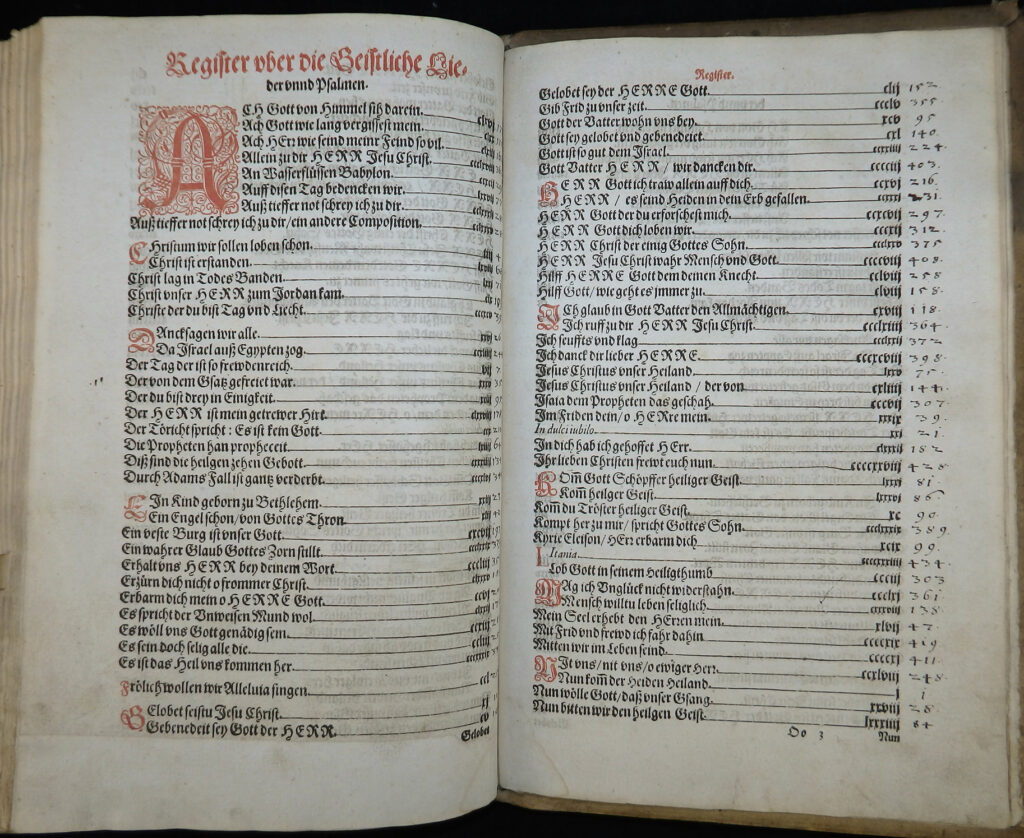 Register vber die Geistliche Lie-
der vnnd Psalmen.
ACH Gott von Himmel sih darein.
Ach Gott wie lang vergissest mein.
Ach HErr wie seind meinr Feind so vil.
Allein zu dir HERR Jesu Christ.
An Wasserflüssen Babylon.
Auff disen Tag bedencken wir.
Auß tieffer not schrey ich zu dir.
Auß tieffer not schrey ich zu dir / ein andere Composition.
Christum wir sollen loben schon.
Christ ist erstanden.
Christ lag in Todes Banden.
Christ vnser HERR zum Jordan kam.
Christe der du bist Tag vnd Liecht.
Dancksagen wir alle.
Da Israel auß Egypten zog.
Der Tag der ist so frewdenreich.
Der von dem Gsatz gefreiet war.
Der du bist drey in Einigkeit.
Der HERR ist mein getrewer Hirt.
Der Töricht spricht: Es ist kein Gott.
Die Propheten han propheceit.
Diß sind die heilgen zehen Gebott.
Durch Adams Fall ist gantz verderbt.
Ein Kind geborn zu Bethlehem.
Ein Engel schon / von Gottes Thron.
Ein veste Burg ist vnser Gott.
Ein wahrer Glaub Gottes Zorn stillt.
Erhalt vns HERR bey deinem Wort.
Erzürn dich nicht o frommer Christ.
Erbarm dich mein o HERRE Gott.
Es spricht der Vnweisen Mund wol.
Es wöll vns Gott genädig sein.
Es sein doch selig alle die.
Es ist das Heil vns kommen her.
Frölich wollen wir Alleluia singen.
Gelobet seistu Jesu Christ.
Gebenedeit sey Gott der HERR.
Gelobet
Register.
Gelobet sey der HERRE Gott. clij 152
Gib Frid zu vnser zeit. ccclv 355
Gott der Vatter wohn vns bey. xcv 95
Gott sey gelobet vnd gebenedeiet. cxl 140
Gott ist so gut dem Israel. ccxxiiij 224
Gott Vatter HERR / wir dancken dir. cccciij 403
HERR Gott ich traw allein auff dich. ccxvj 216
HERR / es seind Heiden in dein Erb gefallen. ccxxxj 231
HERR Gott der du erforschest mich. ccxcvij 297
HERR Gott dich loben wir. cccxij 312
HERR Christ der einig Gottes Sohn. ccclxxv 375
HERR Jesu Christ wahr Mensch vnd Gott. ccccviij 408
Hilff HERRE Gott dem deinen Knecht. cclviij 258
Hilff Gott / wie geht es jmmer zu. clviij 158
Ich glaub in Gott Vatter den Allmächtigen. cxviij 118
Ich ruff zu dir HERR Jesu Christ. ccclxiiij 364
Ich seufftz vnd klag ccclxxij 372
Ich danck dir lieber HERRE. cccxcviij 398
Jesus Christus vnser Heiland. lxxv 75
Jesus Christus vnser Heiland / der von cxliiij 144
Isaia dem Propheten das geschah. cccvij 307
Im Friden dein / o HERre mein. xxxix 39
In dulci iubilo. xxj 21
In dich hab ich gehoffet HErr. clxxxij 182
Ihr lieben Christen frewt euch nun. ccccxxviij 428
Kom̃ Gott Schöpffer heiliger Geist. lxxxj 81
Kom̃ heilger Geist. lxxxvj 86
Kom̃ du Tröster heiliger Geist. xc 90
Kompt her zu mir / spricht Gottes Sohn. ccclxxxix 389
Kyrie Eleison / HErr erbarm dich xcix 99
Litania. ccccxxxiiij 434
Lob Gott in seinem Heiligthumb ccciij 303
Mag ich Vnglück nicht widerstahn. ccclxj 361
Mensch willtu leben seliglich. cxxxviij 138
Mein Seel erhebt den HErren mein. xlvij 47
Mit Frid vnd frewd ich fahr dahin ccccxix 419
Mitten wir im Leben seind. ccccxj 411
Nit vns / nit vns / o ewiger Herr. ccxlviij 248
Nun kom̃ der Heiden Heiland. j 1
Nun wölle Gott / daß vnser Gsang. xxviij 28
Nun bitten wir den heilgen Geist. lxxxiiij 84
Oo 3 Nun